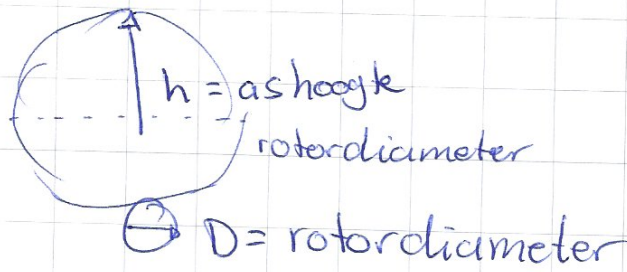 h = ashoogte
rotordiameter
D = rotordiameter